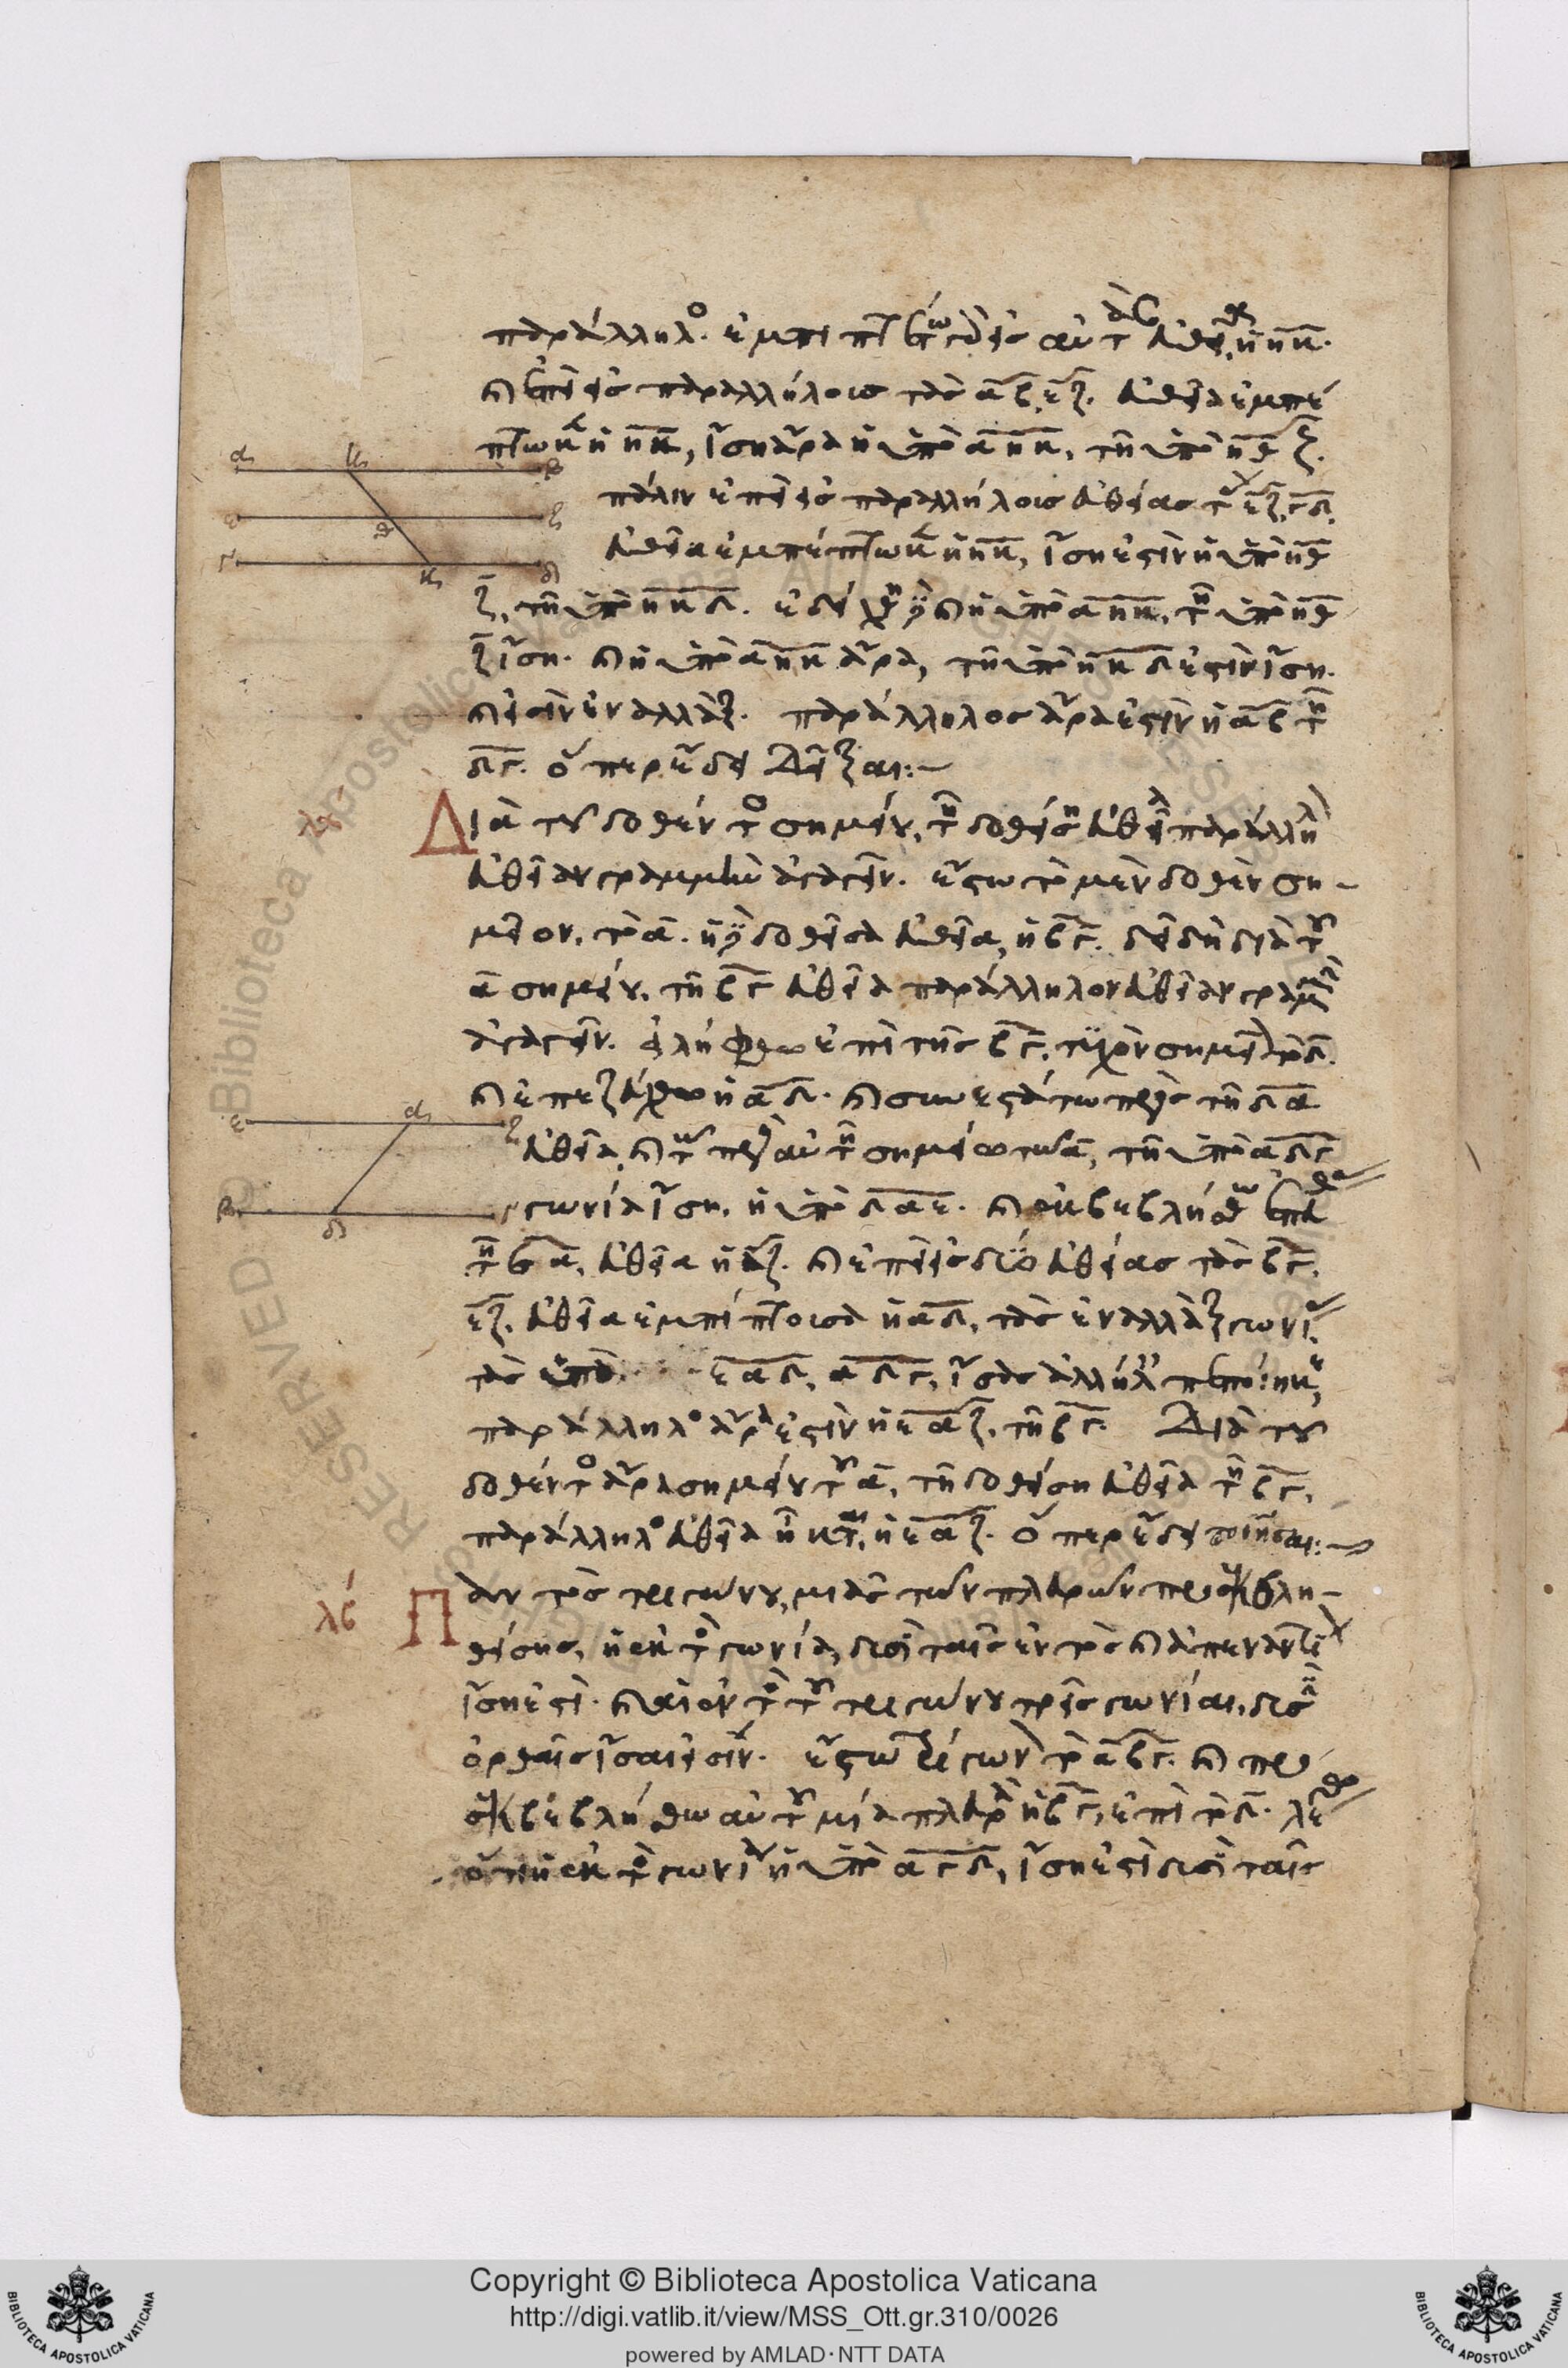 παράλληλος. ἐμπιπτέτω γὰρ εἰς αὐτὰς εὐθεῖα, ἡ ηκ.
καὶ ἐπεὶ εἰς παραλλήλους τὰς αβ, εζ. εὐθεῖα ἐμπέ
πτωκεν ἡ ηκ, ἴση ἄρα ἡ ὑπὸ αηκ, τῇ ὑπὸ ηθζ.
πάλιν ἐπεὶ εἰς παραλλήλους εὐθείας τὰς εζ, γδ.
εὐθεῖα ἐμπέπτωκεν ἡ ηκ, ἴση ἐστὶν ἡ ὑπὸ ηθ
ζ, τῇ ὑπὸ ηκδ. ἐδείχθη δὲ καὶ ἡ ὑπὸ αηκ, τῇ ὑπὸ ηθ
ζ ἴση. καὶ ἡ ὑπὸ αηκ ἄρα, τῇ ὑπὸ ηκδ ἐστὶν ἴση.
καὶ εἰσὶν ἐναλλάξ. παράλληλος ἄρα ἐστὶν ἡ αβ τῇ
δγ. ὅπερ ἔδει δεῖξαι:—
λα Διὰ τοῦ δοθέντος σημείου, τῇ δοθείσῃ εὐθείᾳ παράλληλον
εὐθεῖαν γραμμὴν ἀγαγεῖν. ἔστω τὸ μὲν δοθὲν ση-
μεῖον, τὸ α. ἡ δὲ δοθεῖσα εὐθεῖα, ἡ βγ. δεῖ δὴ διὰ τοῦ
α σημείου, τῇ βγ εὐθείᾳ παράλληλον εὐθεῖαν γραμμὴν
ἀγαγεῖν. εἰλήφθω ἐπὶ τῆς βγ, τυχὸν σημεῖον τὸ δ.
καὶ ἐπεζεύχθω ἡ αδ. καὶ συνεστάτω πρὸς τῇ δα
εὐθείᾳ, καὶ τῷ πρὸς αὐτῇ σημείῳ τῷ α, τῇ ὑπὸ αδγ
γωνίᾳ ἴση, ἡ ὑπὸ δαε. καὶ ἐκβεβλήσθω ἐπ' εὐθείας
τῇ εα, εὐθεῖα ἡ αζ. καὶ ἐπεὶ εἰς δύο εὐθείας τὰς βγ,
εζ. εὐθεῖα ἐμπίπτουσα ἡ αδ, τὰς ἐναλλὰξ γωνίας
τὰς ὑπὸ εαδ, αδγ, ἴσας ἀλλήλαις πεποίηκεν,
παράλληλος ἄρα ἐστὶν ἡ εαζ, τῇ βγ. Διὰ τοῦ
δοθέντος ἄρα σημείου τοῦ α, τῇ δοθείσῃ εὐθείᾳ τῇ βγ,
παράλληλος εὐθεῖα ἦκται, ἡ εαζ. ὅπερ ἔδει ποιῆσαι:—
λβ Παντὸς τριγώνου, μιᾶς τῶν πλευρῶν προσεκβλη-
θείσης, ἡ ἐκτὸς γωνία, δυσὶ ταῖς ἐντὸς καὶ ἀπεναντίον
ἴση ἐστί. καὶ αἱ ἐντὸς τοῦ τριγώνου τρεῖς γωνίαι, δυσὶν
ὀρθαῖς ἴσαι εἰσίν. ἔστω τρίγωνον τὸ αβγ. καὶ προσ
εκβεβλήσθω αὐτοῦ μία πλευρὰ ἡ βγ, ἐπὶ τὸ δ. λέγω
ὅτι ἡ ἐκτὸς γωνία ἡ ὑπὸ αγδ, ἴση ἐστὶ δυσὶ ταῖς
α η β
ε θ ζ
γ κ δ
ε α ζ
β δ γ
Copyright © Biblioteca Apostolica Vaticana
http://digi.vatlib.it/view/MSS_Ott.gr.310/0026
powered by AMLAD·NTT DATA
BIBLIOTECA APOSTOLICA VATICANA
BIBLIOTECA APOSTOLICA VATICANA